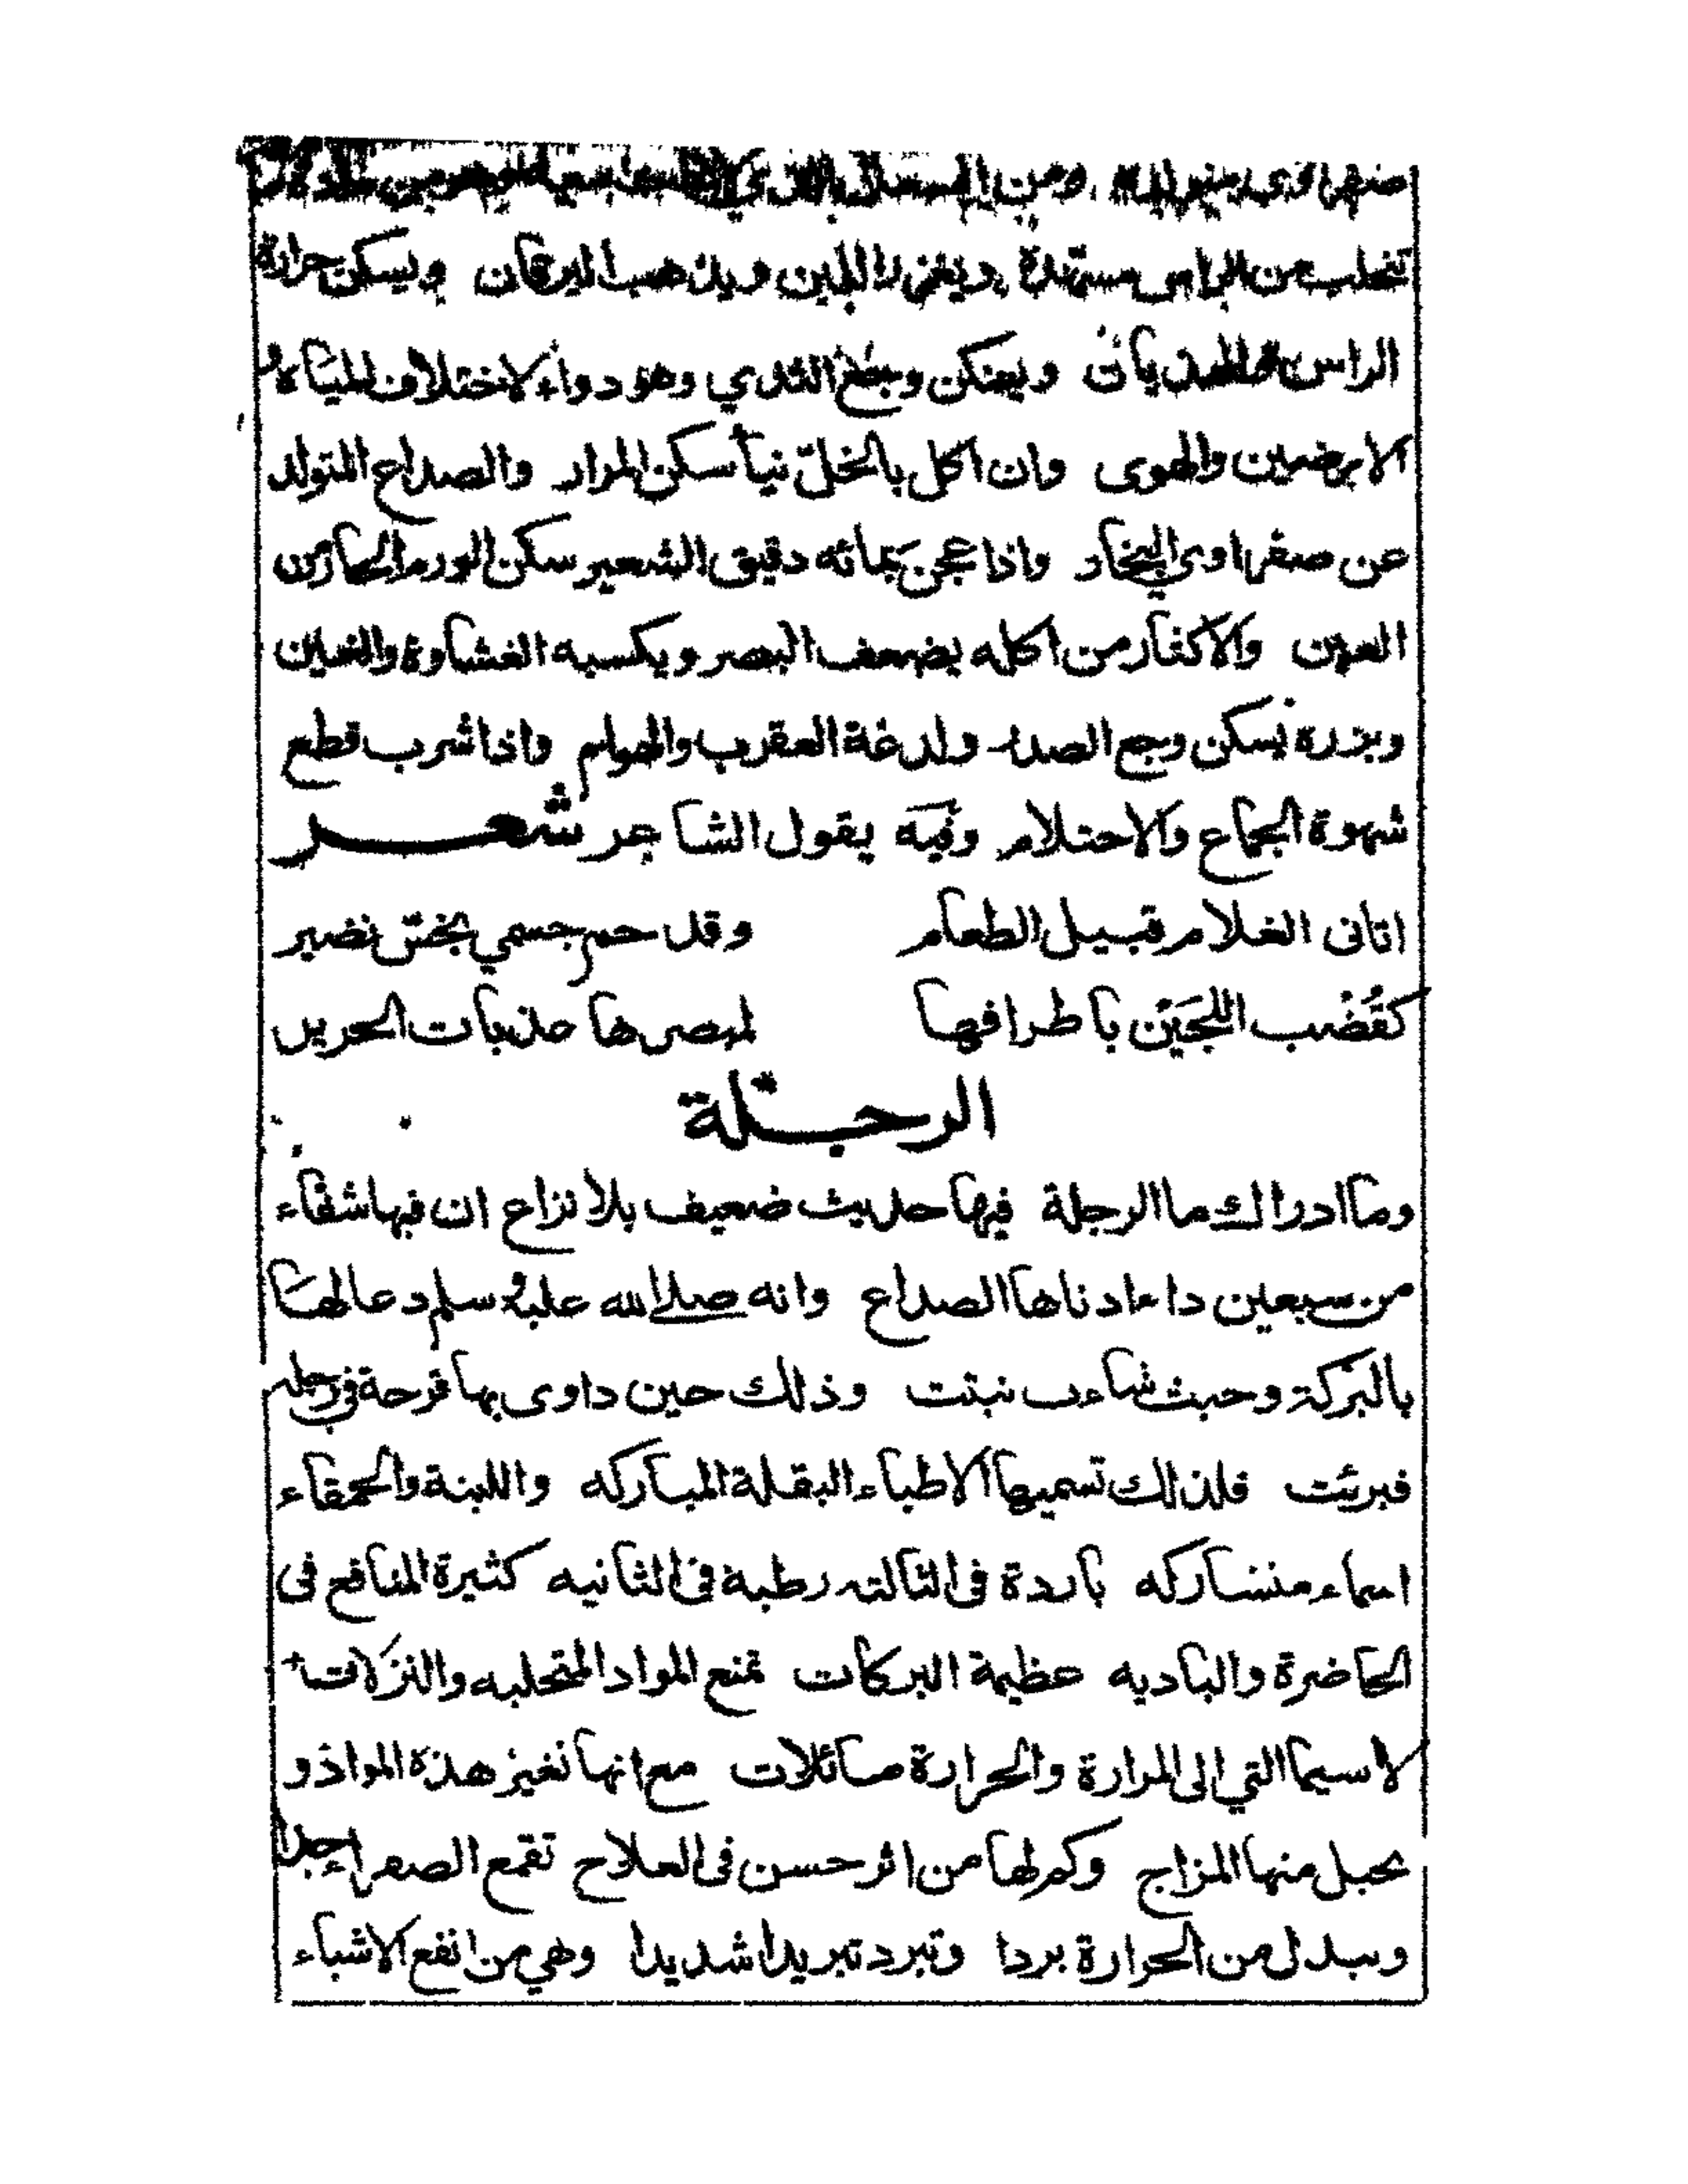 ومن السعال
تتحلب من الراس مستمدة ويغزر اللبن ويذهب اليرقان ويسكن حرارة
الراس والهذيان ويسكن وجع الثدي وهو دواء لاختلاف المياه و
الارضين والهوى وان اكل بالخلّ نيأ سكن المرار والصداع المتولد
عن صفراوي البخار واذا عجن بمائه دقيق الشعير سكن الورم الحار من
العين والاكثار من اكله يضعف البصر ويكسبه الغشاوة والغين
وبزره يسكن وجع الصدر ولدغة العقرب والهوام واذا شرب قطع
شهوة الجماع والاحتلام وفيه يقول الشاعر شعر
اتانى الغلام قبيل الطعام وقد حم جسمي بخسّ نضير
كقُضْب اللجَيْن باطرافها لمبصرها عذبات الحرير
الرجلة
وما ادراك ما الرجلة فيها حديث ضعيف بلا نزاع ان فيها شفاء
من سبعين داء ادناها الصداع وانه صلى الله عليه وسلم دعا لها
بالبركة وحيث شاءت نبتت وذلك حين داوى بها قرحة في رجله
فبرئت فلذلك تسميها الاطباء البقلة المباركه واللينة والحمقاء
اسماء متشاركه باردة فى الثالثه رطبة فى الثانيه كثيرة المنافع فى
الحاضرة والباديه عظيمة البركات تمنع المواد المتحلبه والنزلات
لاسيما التي الى المرارة والحرارة مائلات مع انها تغيز هذه المواد و
يحيل منها المزاج وكم لها من اثر حسن فى العلاج تقمع الصفراء جدا
وتبدل من الحرارة بردا وتبرد تبريدا شديدا وهي من انفع الاشياء